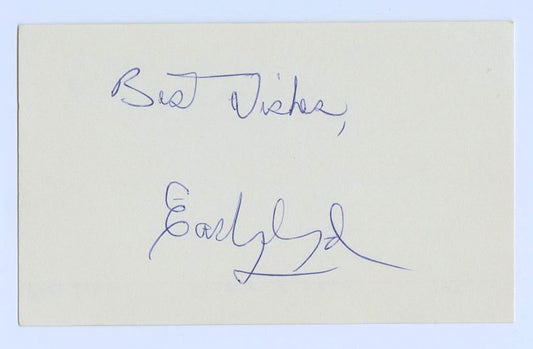 Best Wishes,
Earl Lloyd